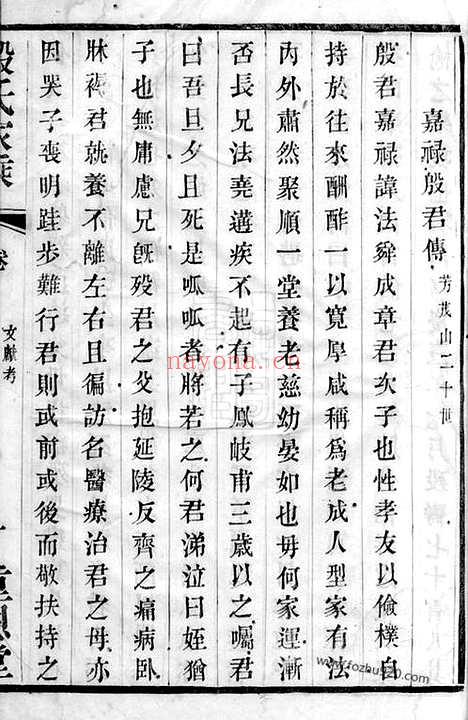 嘉禄殷君傳 芳茂山二十世
殷君嘉禄諱法舜成章君次子也性孝友以儉樸自
持於往來酬酢一以寬厚咸稱爲老成人型家有法
內外肅然聚順一堂養老慈幼晏如也毋何家運漸
否長兄法堯遘疾不起有子鳳岐甫三歲以之囑君
曰吾旦夕且死是呱呱者將若之何君涕泣曰姪猶
子也無庸慮兄旣歿君之父抱延陵反齊之痛病臥
牀褥君就養不離左右且徧訪名醫療治君之母亦
因哭子喪明跬步難行君則或前或後而敬扶持之
殷氏家乘
文獻考
nayona.cn
www.fozhu920.com